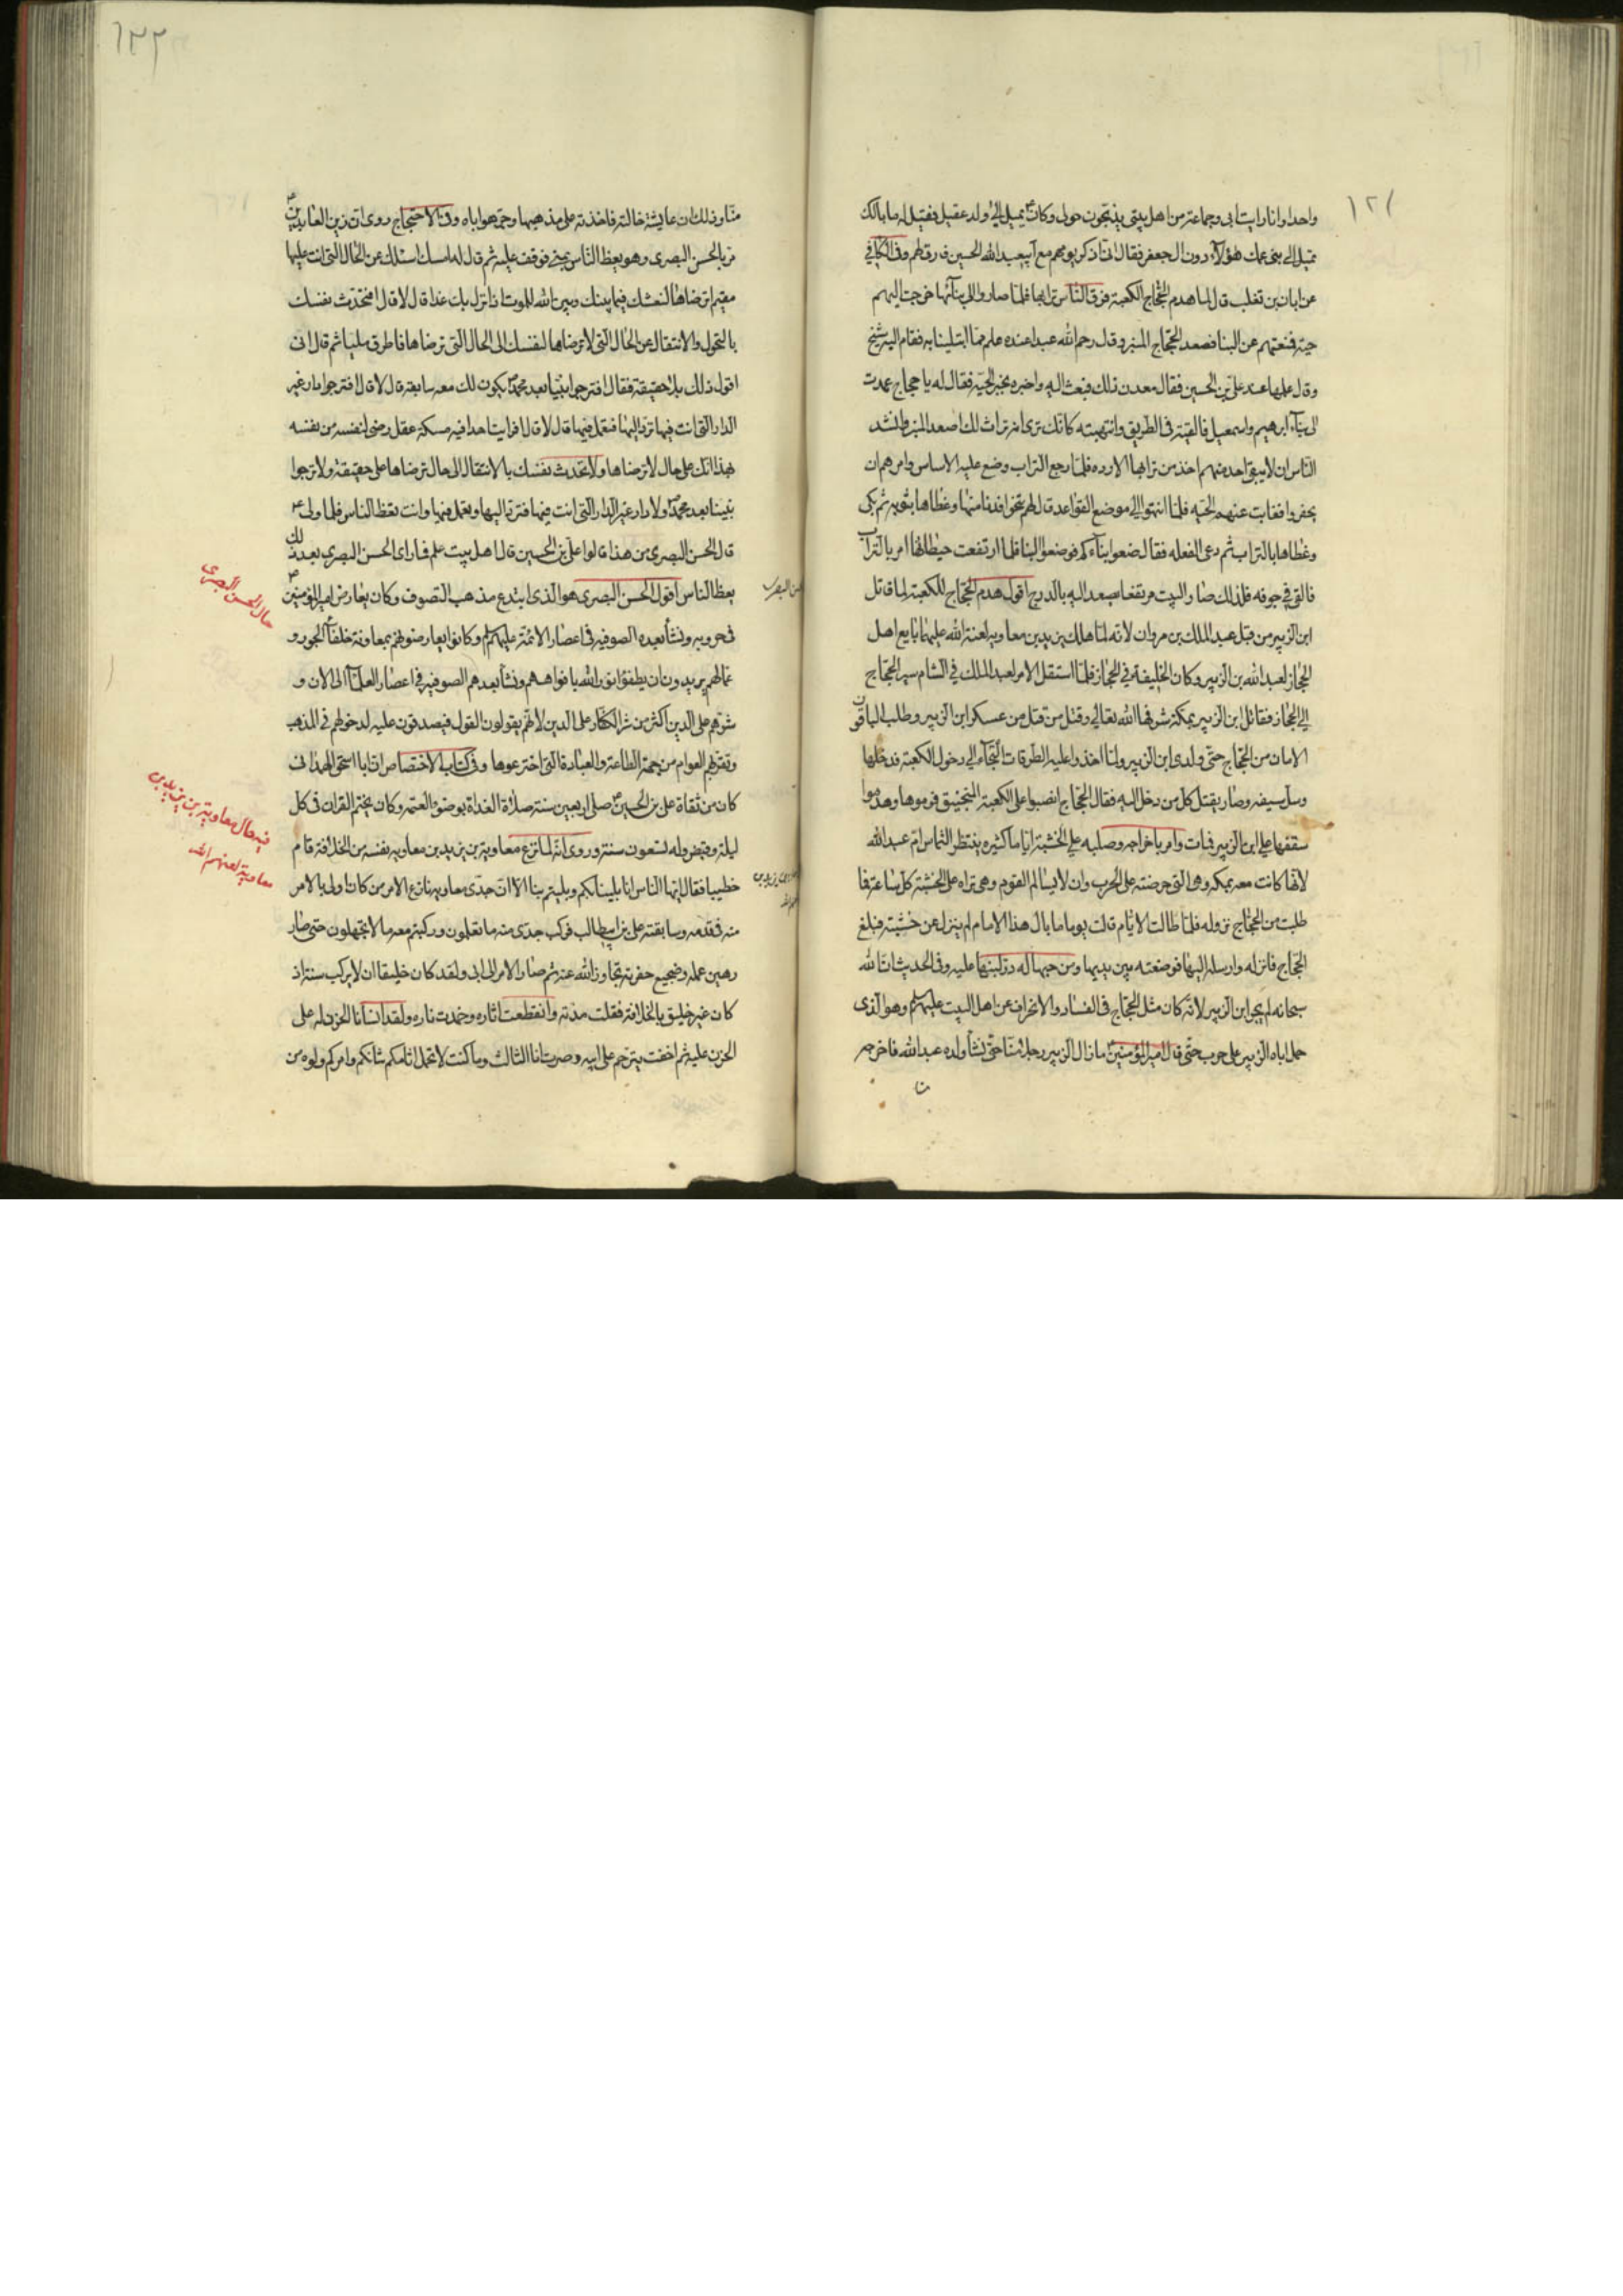 ١٢١
واحدا وانا رايت ابى وجماعة من اهل بيتى يذبحون حولى وكان يميل الى ولد عقيل فقيل له ما بالك
تميل الى بنى عمك هؤلاء دون ال جعفر فقال انى اذكر يومهم مع ابيعبد الله الحسين فارق لهم وفى الكافي
عن ابان بن تغلب قال لما هدم الحجاج الكعبة فرق الناس ترابها فلما صاروا الى بنائها خرجت اليهم
حية فمنعتهم عن البنا فصعد الحجاج المنبر وقال رحم الله عبدا عنده علم مما ابتلينا به فقام اليه شيخ
وقال علمها عند على بن الحسين فقال معدن ذلك فبعث اليه واخبره بخبر الحية فقال له يا حجاج عمدت
الى بناء ابرهيم واسمعيل فالقيته فى الطريق وانتهبته كانك ترى انه تراث لك اصعد المنبر وانشد
الناس ان لا يبقى احد منهم اخذ من ترابها الا رده فلما رجع التراب وضع عليه الاساس وامرهم ان
يحفروا فغابت عنهم الحية فلما انتهوا الى موضع القواعد قال لهم تنحوا فدنا منها وغطاها بثوبه ثم بكى
وغطاها بالتراب ثم دعى الفعله فقال ضعوا بناءكم فوضعوا البنا فلما ارتفعت حيطانها امر بالتراب
فالقى في جوفه فلذلك صار البيت مرتفعا يصعد اليه بالدرج اقول هدم الحجاج للكعبة لما قاتل
ابن الزبير من قبل عبد الملك بن مروان لانه لما هلك يزيد بن معاويه لعنة الله عليهما بايع اهل
الحجاز لعبد الله بن الزبير وكان الخليفة في الحجاز فلما استقل الامر لعبد الملك في الشام سير الحجاج
الي الحجاز فقاتل ابن الزبير بمكة شرفها الله تعالي وقتل من قتل من عسكر ابن الزبير وطلب الباقون
الامان من الحجاج حتى ولدى ابن الزبير ولما اخذوا عليه الطرقات التجاء الي دخول الكعبة فدخلها
وسل سيفه وصار يقتل كل من دخل اليه فقال الحجاج انصبوا على الكعبة المنجنيق فرموها وهدموا
سقفها علي ابن الزبير فمات وامر باخراجه وصلبه علي الخشبة اياما كثيره ينتظر التماس ام عبد الله
لانها كانت معه بمكه وهى التى حرضته على الحرب وان لا يسالم القوم وهى تراه على الخشبة كل ساعة فما
طلبت من الحجاج نزوله فلما طالت الايام قالت يوما ما بال هذا الامام لم ينزل عن خشبته فبلغ
الحجاج فانزله وارسله اليها فوضعته بين يديها ومن حبها له در لبنها عليه وفى الحديث ان الله
سبحانه لم يجر ابن الزبير لانه كان مثل الحجاج فى الفساد والانحراف عن اهل البيت عليهم السلم وهو الذى
حمل اباه الزبير على حرب حتى قال امير المؤمنين ما زال الزبير رجلا منا حتى نشأ ولده عبد الله فاخرجه
١٢٢
منا وذلك ان عايشة خالته فاخذته على مذهبها وحمته هوا اباه وفى الاحتجاج روى ان زين العابدين
مر بالحسن البصرى وهو يعظ الناس بمنى فوقف عليه ثم قال له امسك اسئلك عن الحال التى انت عليها
مقيم اترضاها لنفسك فيما بينك وبين الله للموت اذا نزل بك غدا قال لا قال افتحدث نفسك
بالتحول والانتقال عن الحال التى لا ترضاها لنفسك الى الحال التى ترضاها فاطرق مليا ثم قال انى
اقول ذلك بلا حقيقة فقال افترجوا نبيا بعد محمد يكون لك معه سابقة قال لا قال افترجوا دار غير
الدار التى انت فيها ترد اليها فتعمل فيها قال لا قال افرايت احدا فيه مسكة عقل رضى لنفسه من نفسه
بهذا انك على حال لا ترضاها ولا تحدث نفسك بالانتقال الى حال ترضاها على حقيقة ولا ترجوا
نبينا بعد محمد ولا دار غير الدار التى انت فيها فترد اليها وتعمل فيها وانت تعظ الناس فلما ولى
قال الحسن البصرى من هذا قالوا على بن الحسين قال اهل بيت علم فما راى الحسن البصرى بعد ذلك
يعظ الناس اقول الحسن البصرى هو الذى ابتدع مذهب التصوف وكان يعارض امير المؤمنين
فى حروبه ونشأ بعده الصوفيه فى اعصار الائمة عليهم السلم وكانوا يعارضونهم بمعاونة خلفاء الجور و
عمالهم يريدون ان يطفؤا نور الله بافواههم ونشأ بعدهم الصوفيه فى اعصار العلماء الى الان و
شرهم على الدين اكثر من شر الكفار على الدين لانهم يقولون القول فيصدقون عليه لدخولهم في المذهب
وتغرهم العوام من جهة الطاعة والعبادة التى اخترعوها وفى كتاب الاختصاص ان ابا اسحق الهمدانى
كان من ثقاة على بن الحسين صلى اربعين سنة صلاة الغداة بوضو العتمه وكان يختم القران فى كل
ليلة وقبض وله تسعون سنة وروى انه لما نزع معاوية بن يزيد بن معاويه نفسه من الخلافة قام
خطيبا فقال ايها الناس انا بلينا بكم وبليتم بنا الا ان جدى معاويه نازع الامر من كان اولى بالامر
منه فى قدمه وسابقته على بن ابيطالب فركب جدى منه ما تعلمون وركبتم معه ما لا تجهلون حتى صار
رهين عمله وضجيع حفرته تجاوز الله عنه ثم صار الامر الى ابى ولقد كان خليقا ان لا يركب سننه اذ
كان غير خليق بالخلافة فقلت مدته وانقطعت اثاره وخمدت ناره ولقد انسانا الحزن له على
الحزن عليه ثم اخفت يترحم على ابيه وصرت انا الثالث وما كنت لاتحمل اثامكم شانكم وامركم ولوه من
حال الحسن البصرى
فيه حال معاوية بن يزيد بن
معاوية لعنهم الله